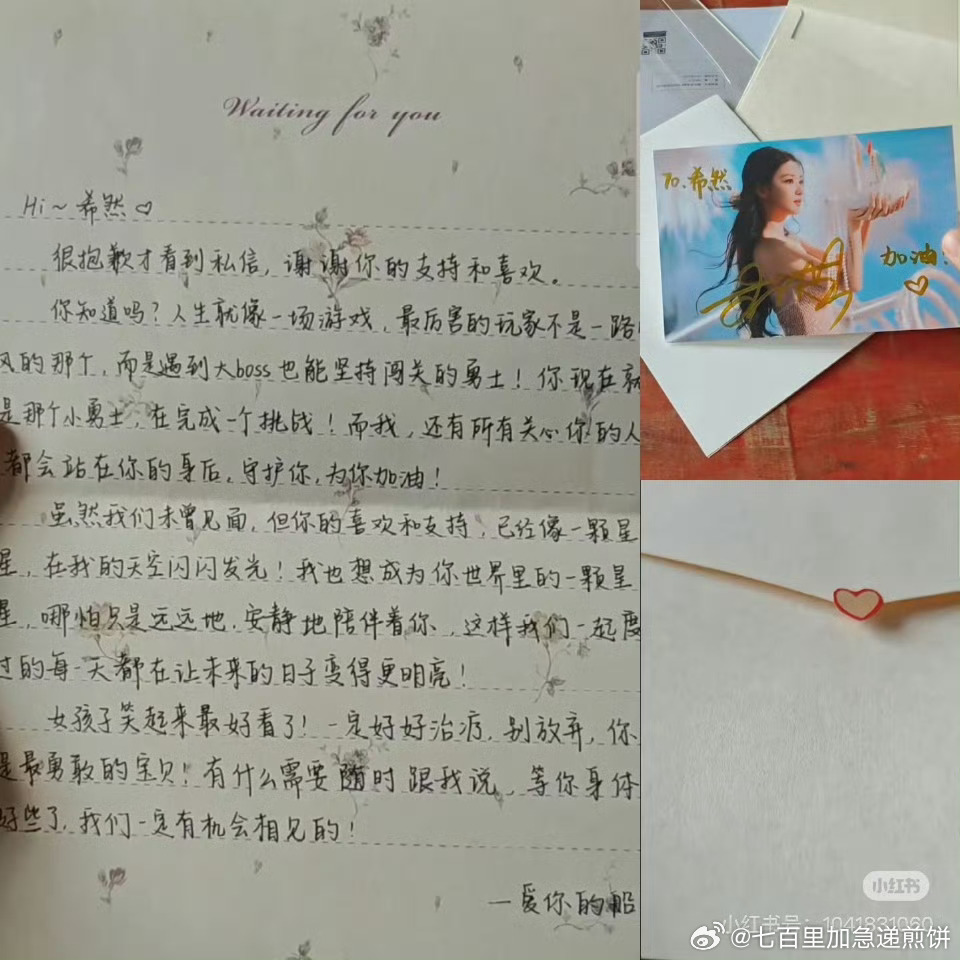 Waiting for you
Hi～希然♡
很抱歉才看到私信，谢谢你的支持和喜欢。
你知道吗？人生就像一场游戏，最厉害的玩家不是一路
风的那个，而是遇到大boss也能坚持闯关的勇士！你现在就
是那个小勇士，在完成一个挑战！而我，还有所有关心你的人
都会站在你的身后，守护你，为你加油！
虽然我们未曾见面，但你的喜欢和支持，已经像一颗星
星，在我的天空闪闪发光！我也想成为你世界里的一颗星
星，哪怕只是远远地、安静地陪伴着你，这样我们一起度
过的每一天都在让未来的日子变得更明亮！
女孩子笑起来最好看了！一定好好治疗，别放弃，你
是最勇敢的宝贝！有什么需要随时跟我说，等你身体
好些了，我们一定有机会相见的！
—爱你的船
To.希然
加油！
♡
小红书
小红书号：1041831060
@七百里加急递煎饼